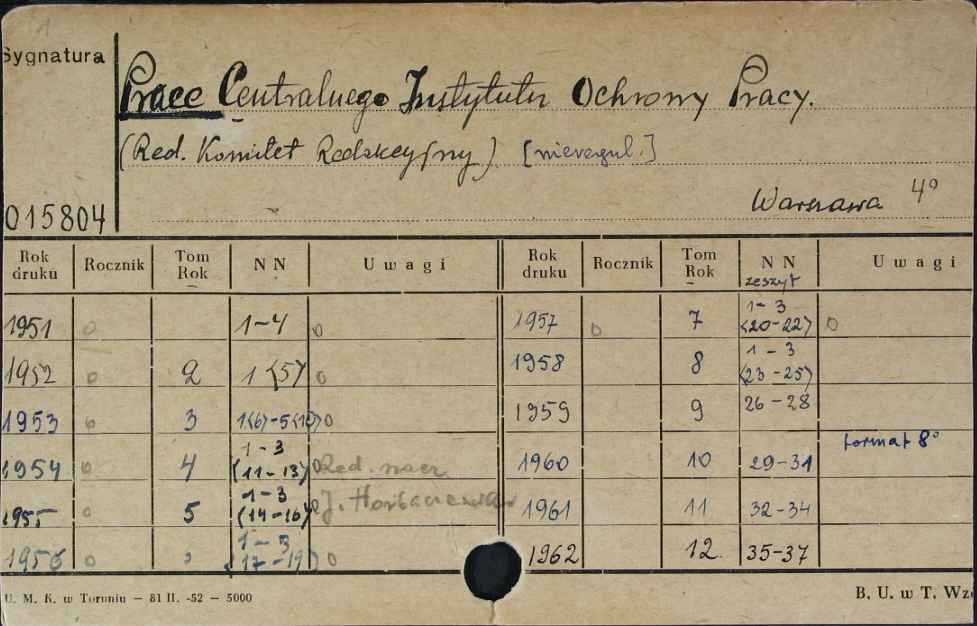 1
Sygnatura
Prace Centralnego Instytutu Ochrony Pracy.
(Red. Komitet Redakcyjny). [nieregul.]
Warszawa 4°
015804
Rok druku Rocznik Tom Rok NN Uwagi Rok druku Rocznik Tom Rok NN zeszyt Uwagi
1951 o 1-4 o 1957 o 7 1-3 <20-22> o
1952 o 2 1<5> o 1958 8 1-3 <23-25>
1953 o 3 1<6>-5<10> o 1959 9 26-28
1954 o 4 1-3 (11-13) o Red. nacz 1960 10 29-31 format 8°
1955 o 5 1-3 (14-16) J. 1961 11 32-34
1956 o 1-3 <17-19> o 1962 12. 35-37
U. M. K. w Toruniu — 81 II. -52 — 5000 B. U. w T. Wzó